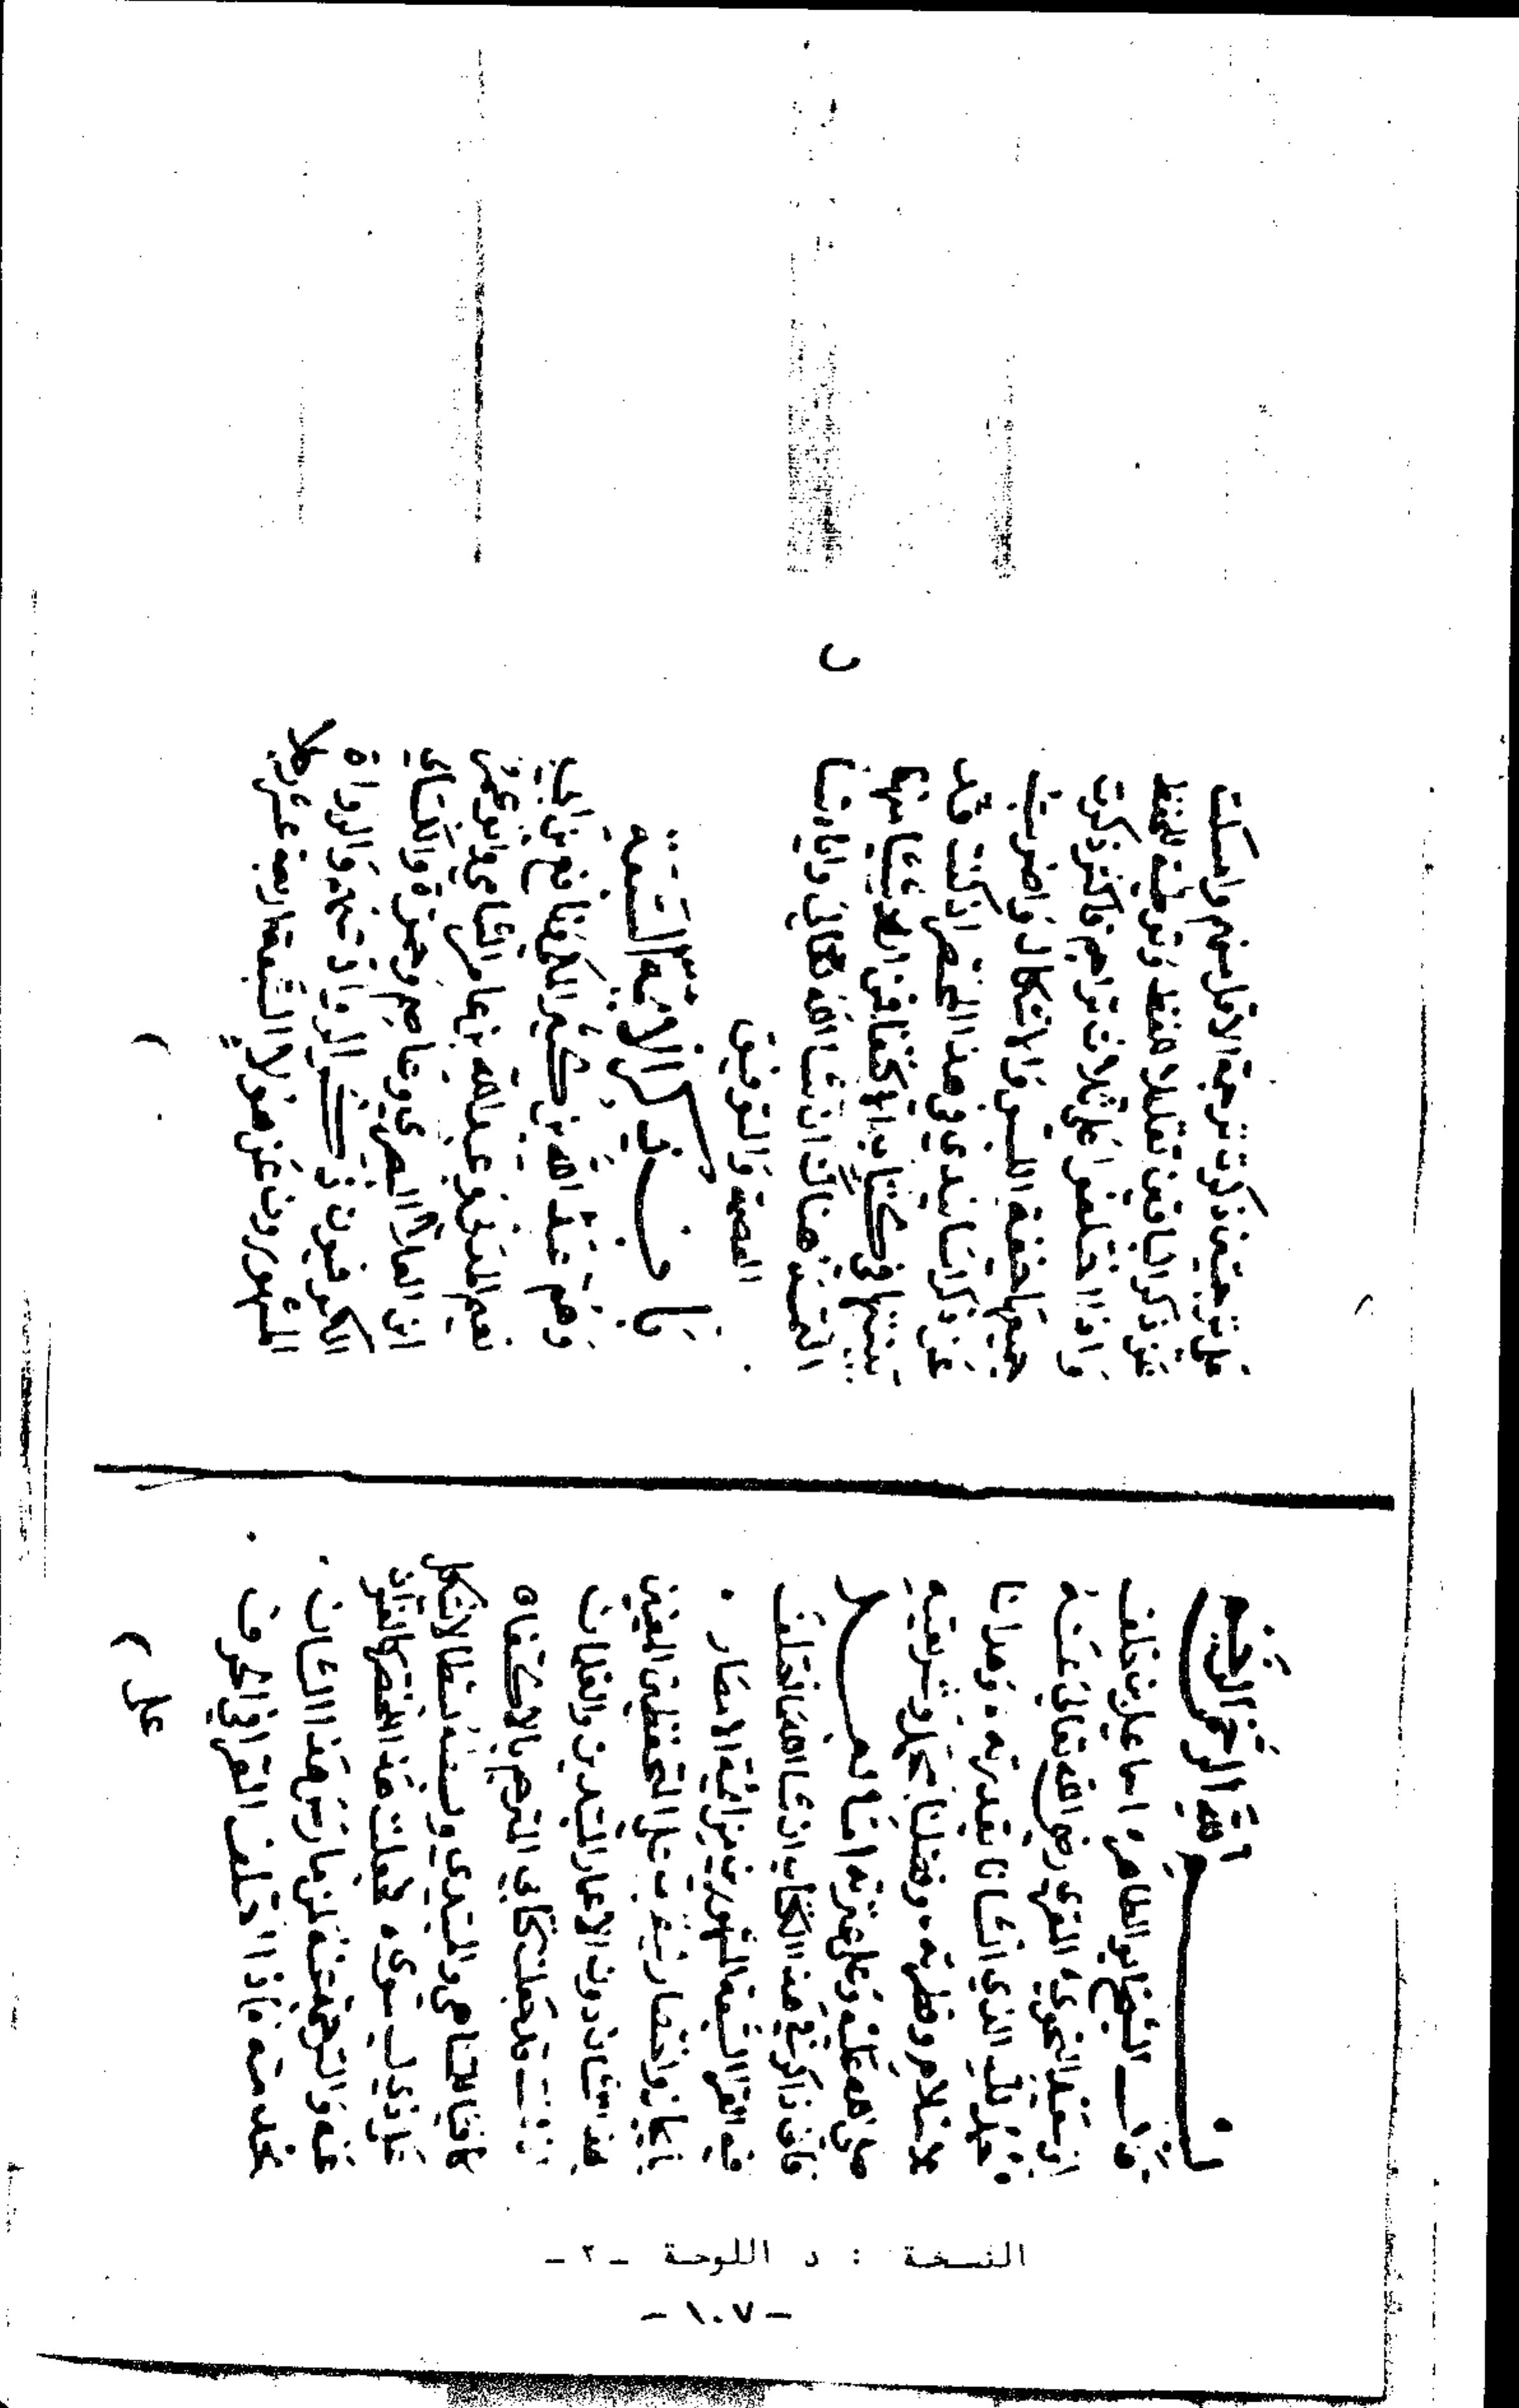 النسخة : د اللوحة -٢-
بسم الله الرحمن الرحيم
قال الشيخ ابو الطاهر اسماعيل بن خلف
ابن سعيد النحوي المقري رضي الله تعالى عنه
الحمد لله الذي انشانا بقدرته وهدانا
للاسلام وفطرته وفضلنا بمحمد وشريعته
صلى الله عليه وعلى عترته اما بعد
فاني ذاكر في هذا الكتاب ان شا الله ما اختلف
فيه القرا السبعة المشهورون من ايمة الامصار
بايجاز واختصار على المتحفظين المعنيين
بهذا الشان دون الاغمار المبتدين
جعلت كتابي المترجم بالاكتفاء
كافيا والمبتدي وبسطته بسطا لا يشكل
على ذي لب سوي فجعلت هذا المختصر كالعنوان
عنه والترجمة هذا الشان
فاذا اختلف القرا في الحرف
على
على ترجمتين ذكرت ترجمة الاقل منهم وامسكت
عن ذكر الباقين تقليلا للفظ
واذا اختلفوا على ثلاث تراجم فاكثر ذكرت
جميعها خيفة اللبس والاشكال واضربت
عن ذكر اسانيدي في هذا المختصر اذ كنت قد
بينتها في كتاب الاكتفا فمن منها
التمسه هناك ان شا الله تعالى
العصمة والتوفيق
باب ذكر الائمة السبعة
وهم عبد الله بن كثير المكي ونافع بن ابي
نعيم المدني وعبد الله بن عامر الشامي وابو عمرو
ابن العلاء البصري وعاصم وحمزة والكسائي
الكوفيون ذكر الرواة عنهم والرواة
المشهورون عن هؤلاء السبعة اربعة عشر رجلا
-١٠٧-